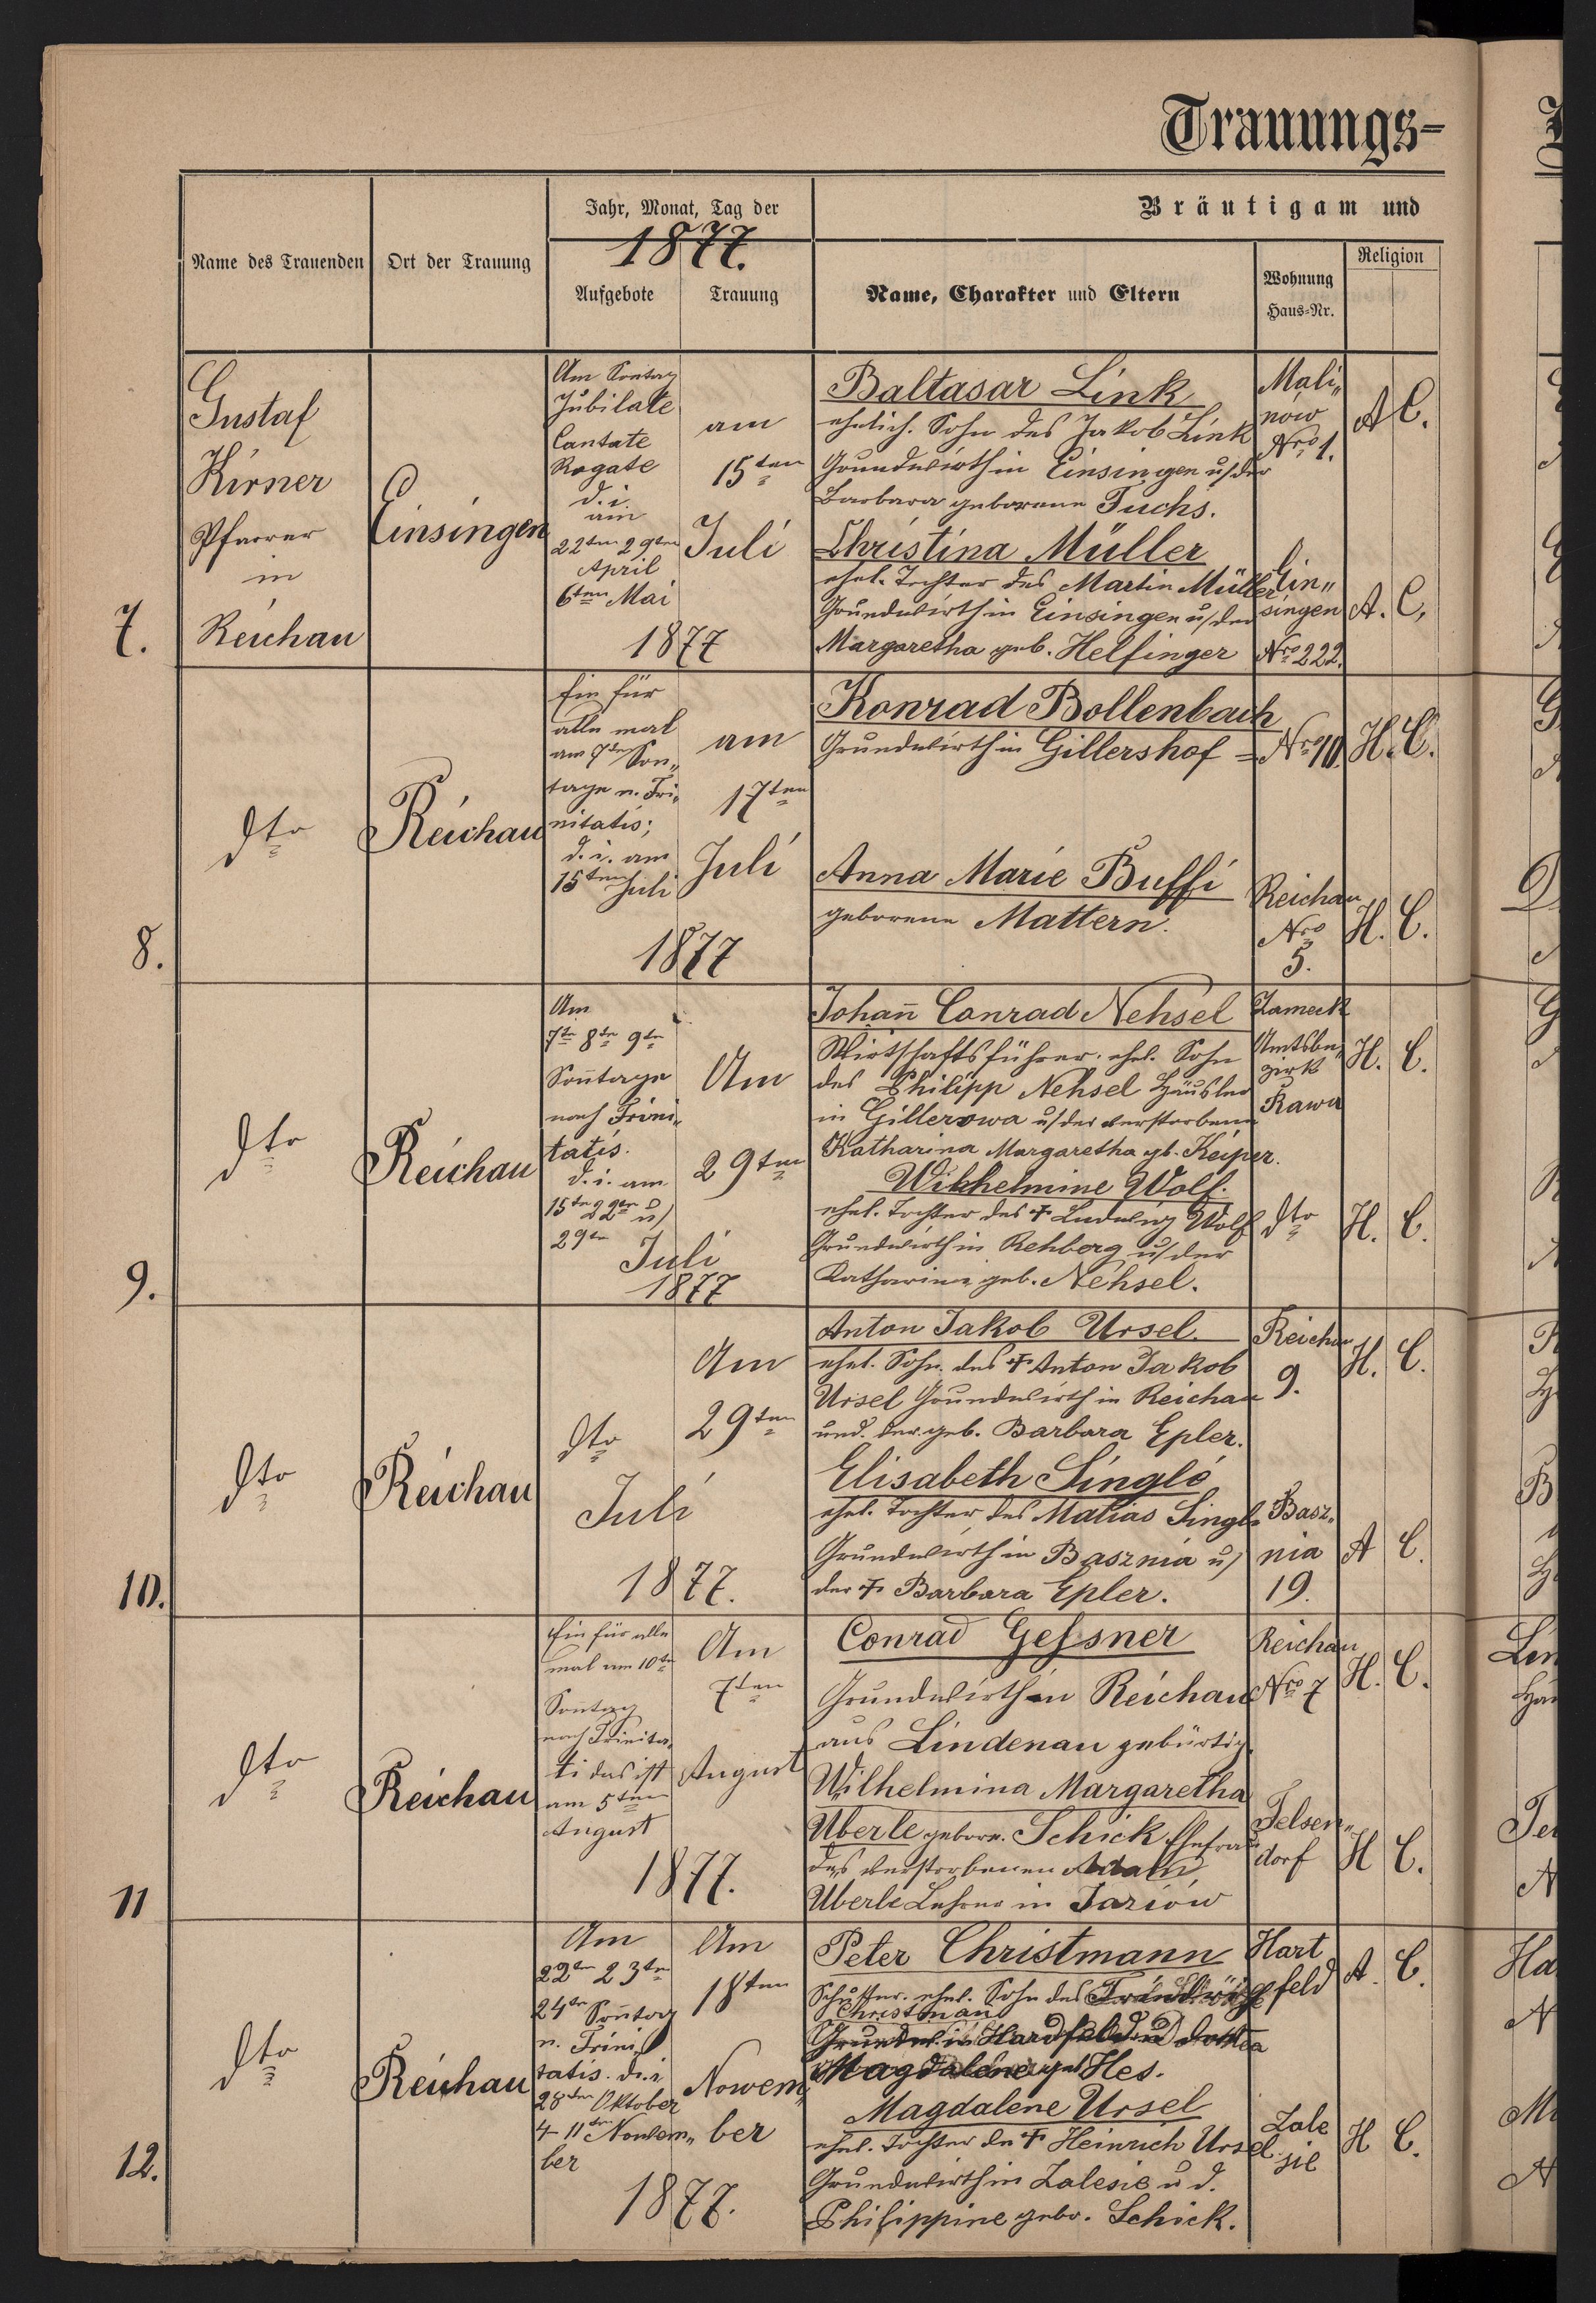 Trauungs-
Name des Trauenden
Ort der Trauung
Jahr, Monat, Tag der
1877.
Aufgebote
Trauung
Bräutigam und
Name, Charakter und Eltern
Wohnung
Haus-Nr.
Religion
7.
Gustaf
Kirner
Pfarrer
in
Reichau
Einsingen
Am Sontag
Jubilate
Cantate
Rogate
d. i.
am
22ten 29ten
April
6ten Mai
am
15ten
Juli
1877
Baltasar Link
ehelich. Sohn des Jakob Link
Grundwirth in Einsingen u/ der
Barbara geborene Fuchs.
Mali„
now
Nro 1.
A C.
Christina Müller
ehel. Tochter des Martin Müller
Grundwirth in Einsingen u/ der
Margaretha geb. Helfinger
Ein„
singen
Nro 222.
A. C,
8.
dto
Reichau
Ein für
alle mal
am 7ten Son„
tage n. Tri„
nitatis;
d. i. am
15ten Juli
am
17ten
Juli
1877
Konrad Bollenbach
Grundwirth in Gillershof =
Nro 10.
H. C.
Anna Marie Buffi
geborene Mattern.
Reichau
Nro
5.
H. C.
9.
dto
Reichau
Am
7te 8te 9te
Son̄tage
nach Trini„
tatis.
d. i. am
15te 22te u/
29te
Am
29ten
Juli
1877
Johan̄ Conrad Nehsel
Wirtschaftsführer. ehel. Sohn
des Philipp Nehsel Häusler
in Gillerowa u/ der verstorbene
Katharina Margaretha gb. Keiper.
Zameck
Amtsbe„
zirk
Rawa
H. C.
Wilhelmine Wolf.
ehel. Tochter des † Ludwig Wolf
Grundwirth in Rehberg u/ der
Katharina geb. Nehsel.
dto
H. C.
10.
dto
Reichau
dto
Am
29ten
Juli
1877.
Anton Jakob Ursel.
ehel. Sohn. des † Anton Jakob
Ursel Grundwirth in Reichau
und. der. geb. Barbara Epler.
Reichau
9.
H. C.
Elisabeth Singlé
ehel. Tochter des Matias Singlé
Grundwirth in Basznia u/
der † Barbara Epler.
Basz„
nia
19.
A C.
11
dto
Reichau
Ein für alle
mal am 10te
Son̄tag
nach Trinita„
ti das ist
am 5ten
August
Am
7ten
August
1877.
Conrad Gessner
Grundwirth in Reichau
aus Lindenau gebürtig.
Reichau
Nro 7
H. C.
Wilhelmina Margaretha
Uberle geborn. Schick Ehefrau
des verstorbenen Adam
Uberle Lehrer in Jaziów
Felsen„
dorf
H C.
12.
dto
Reichau
Am
22te 23te
24te Son̄tag
n. Trini„
tatis. d. i
28ten Oktober
4 11ten Novem„
ber
Am
18ten
Nowem„
ber
1877.
Peter Christmann
Schuster. ehel. Sohn des
Christman
Magdalene geb Hes.
Hart
feld
A. C.
Magdalene Ursel
ehel. Tochter de † Heinrich Ursel
Grundwirth in Zalesie u d.
Philippine gebo. Schick.
Zale
sie
H C.